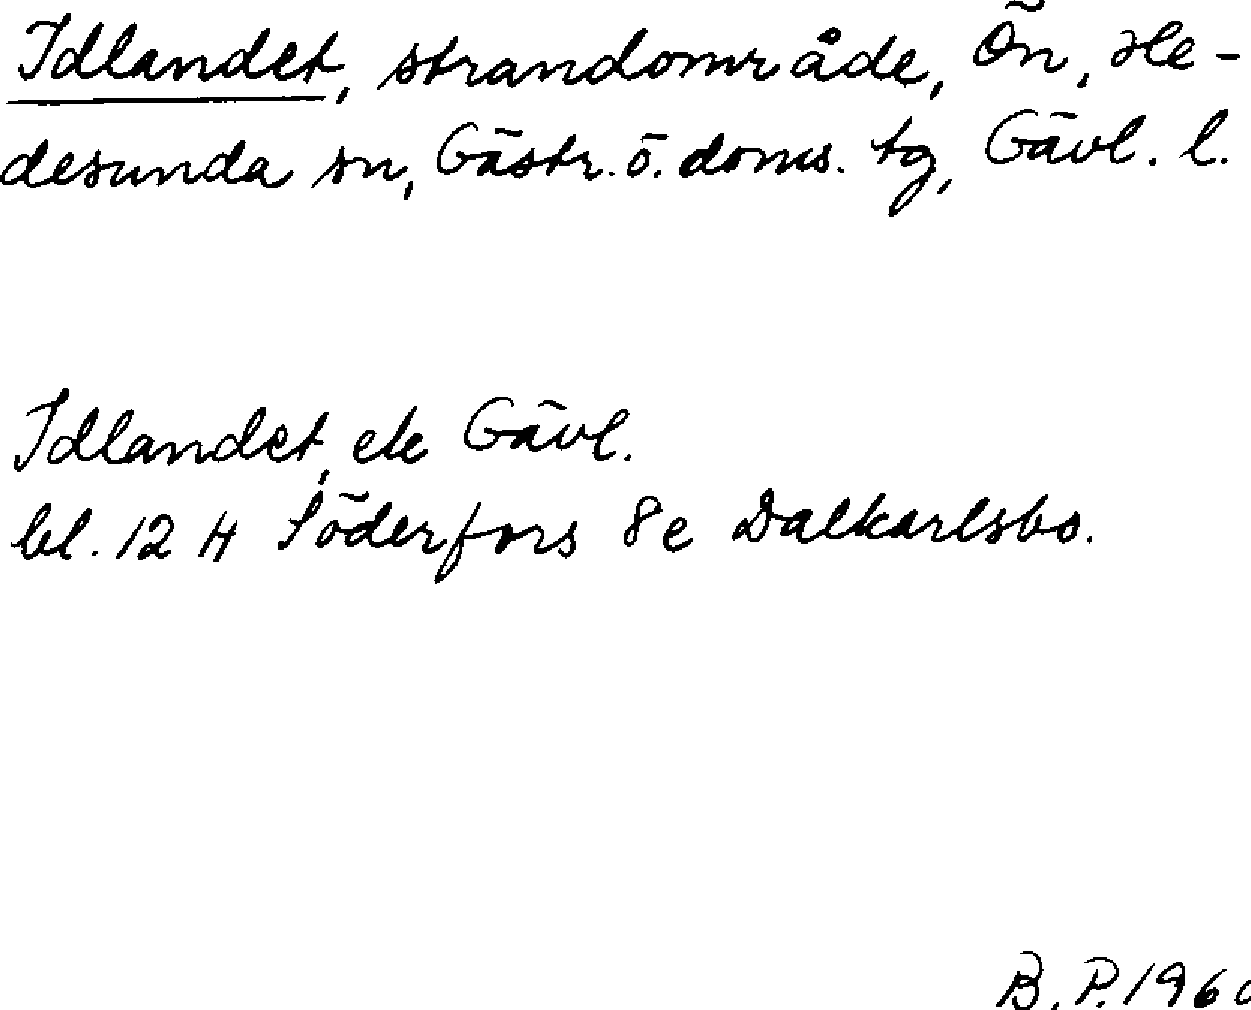 Idlandet, strandområde, Ön, He-
desunda sn, Gästr. ö. doms. tg, Gävl. l.
Idlandet, ek Gävl.
bl. 12 H Söderfors 8e Dalkarlsbo.
B. P. 1960